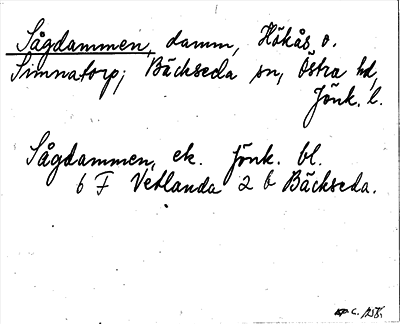 Sågdammen, damm, Hökås o.
Simnatorp; Bäckseda sn, Östra hd,
Jönk. l.
Sågdammen, ek. Jönk. bl.
6 F Vetlanda 2 b Bäckseda.